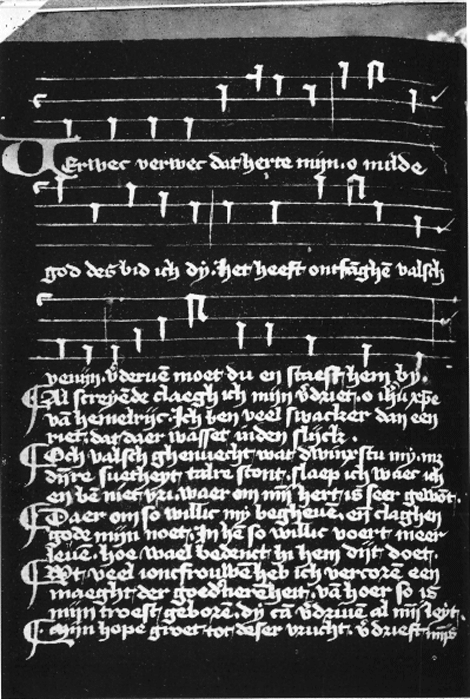 Verwec verwec dat herte mijn. o milde
god des bid ich dy. het heeft ontfāghē valsch
venijn. v̄deruē moet du en staest hem by.
Al screyēde claegh ich mijn v̄driet. o ihū xp̄e
vā hemelrijc. Ich ben veel swacker dan een
riet. dat daer wasset in den slijck.
Och valsch ghenuecht wat dwinxstu my. mz
dijre suetheyt talre stont. slaep ich waec ich
en bē niet vri. waer om mijn hert is seer gewōt.
Daer om so willic my begheuē. en claghen
gode mijn noet. In hē so willic voert meer
leuē. hoe wael bedenct hi hem dijt doet.
Wt veel ioncfrouwē heb ich vercorē een
maeght der goedherenheit. vā hoer so is
mijn troest geborē. dy cā v̄driuē al mijn leyt.
Mijn hope groet tot deser vrucht. v̄drieft